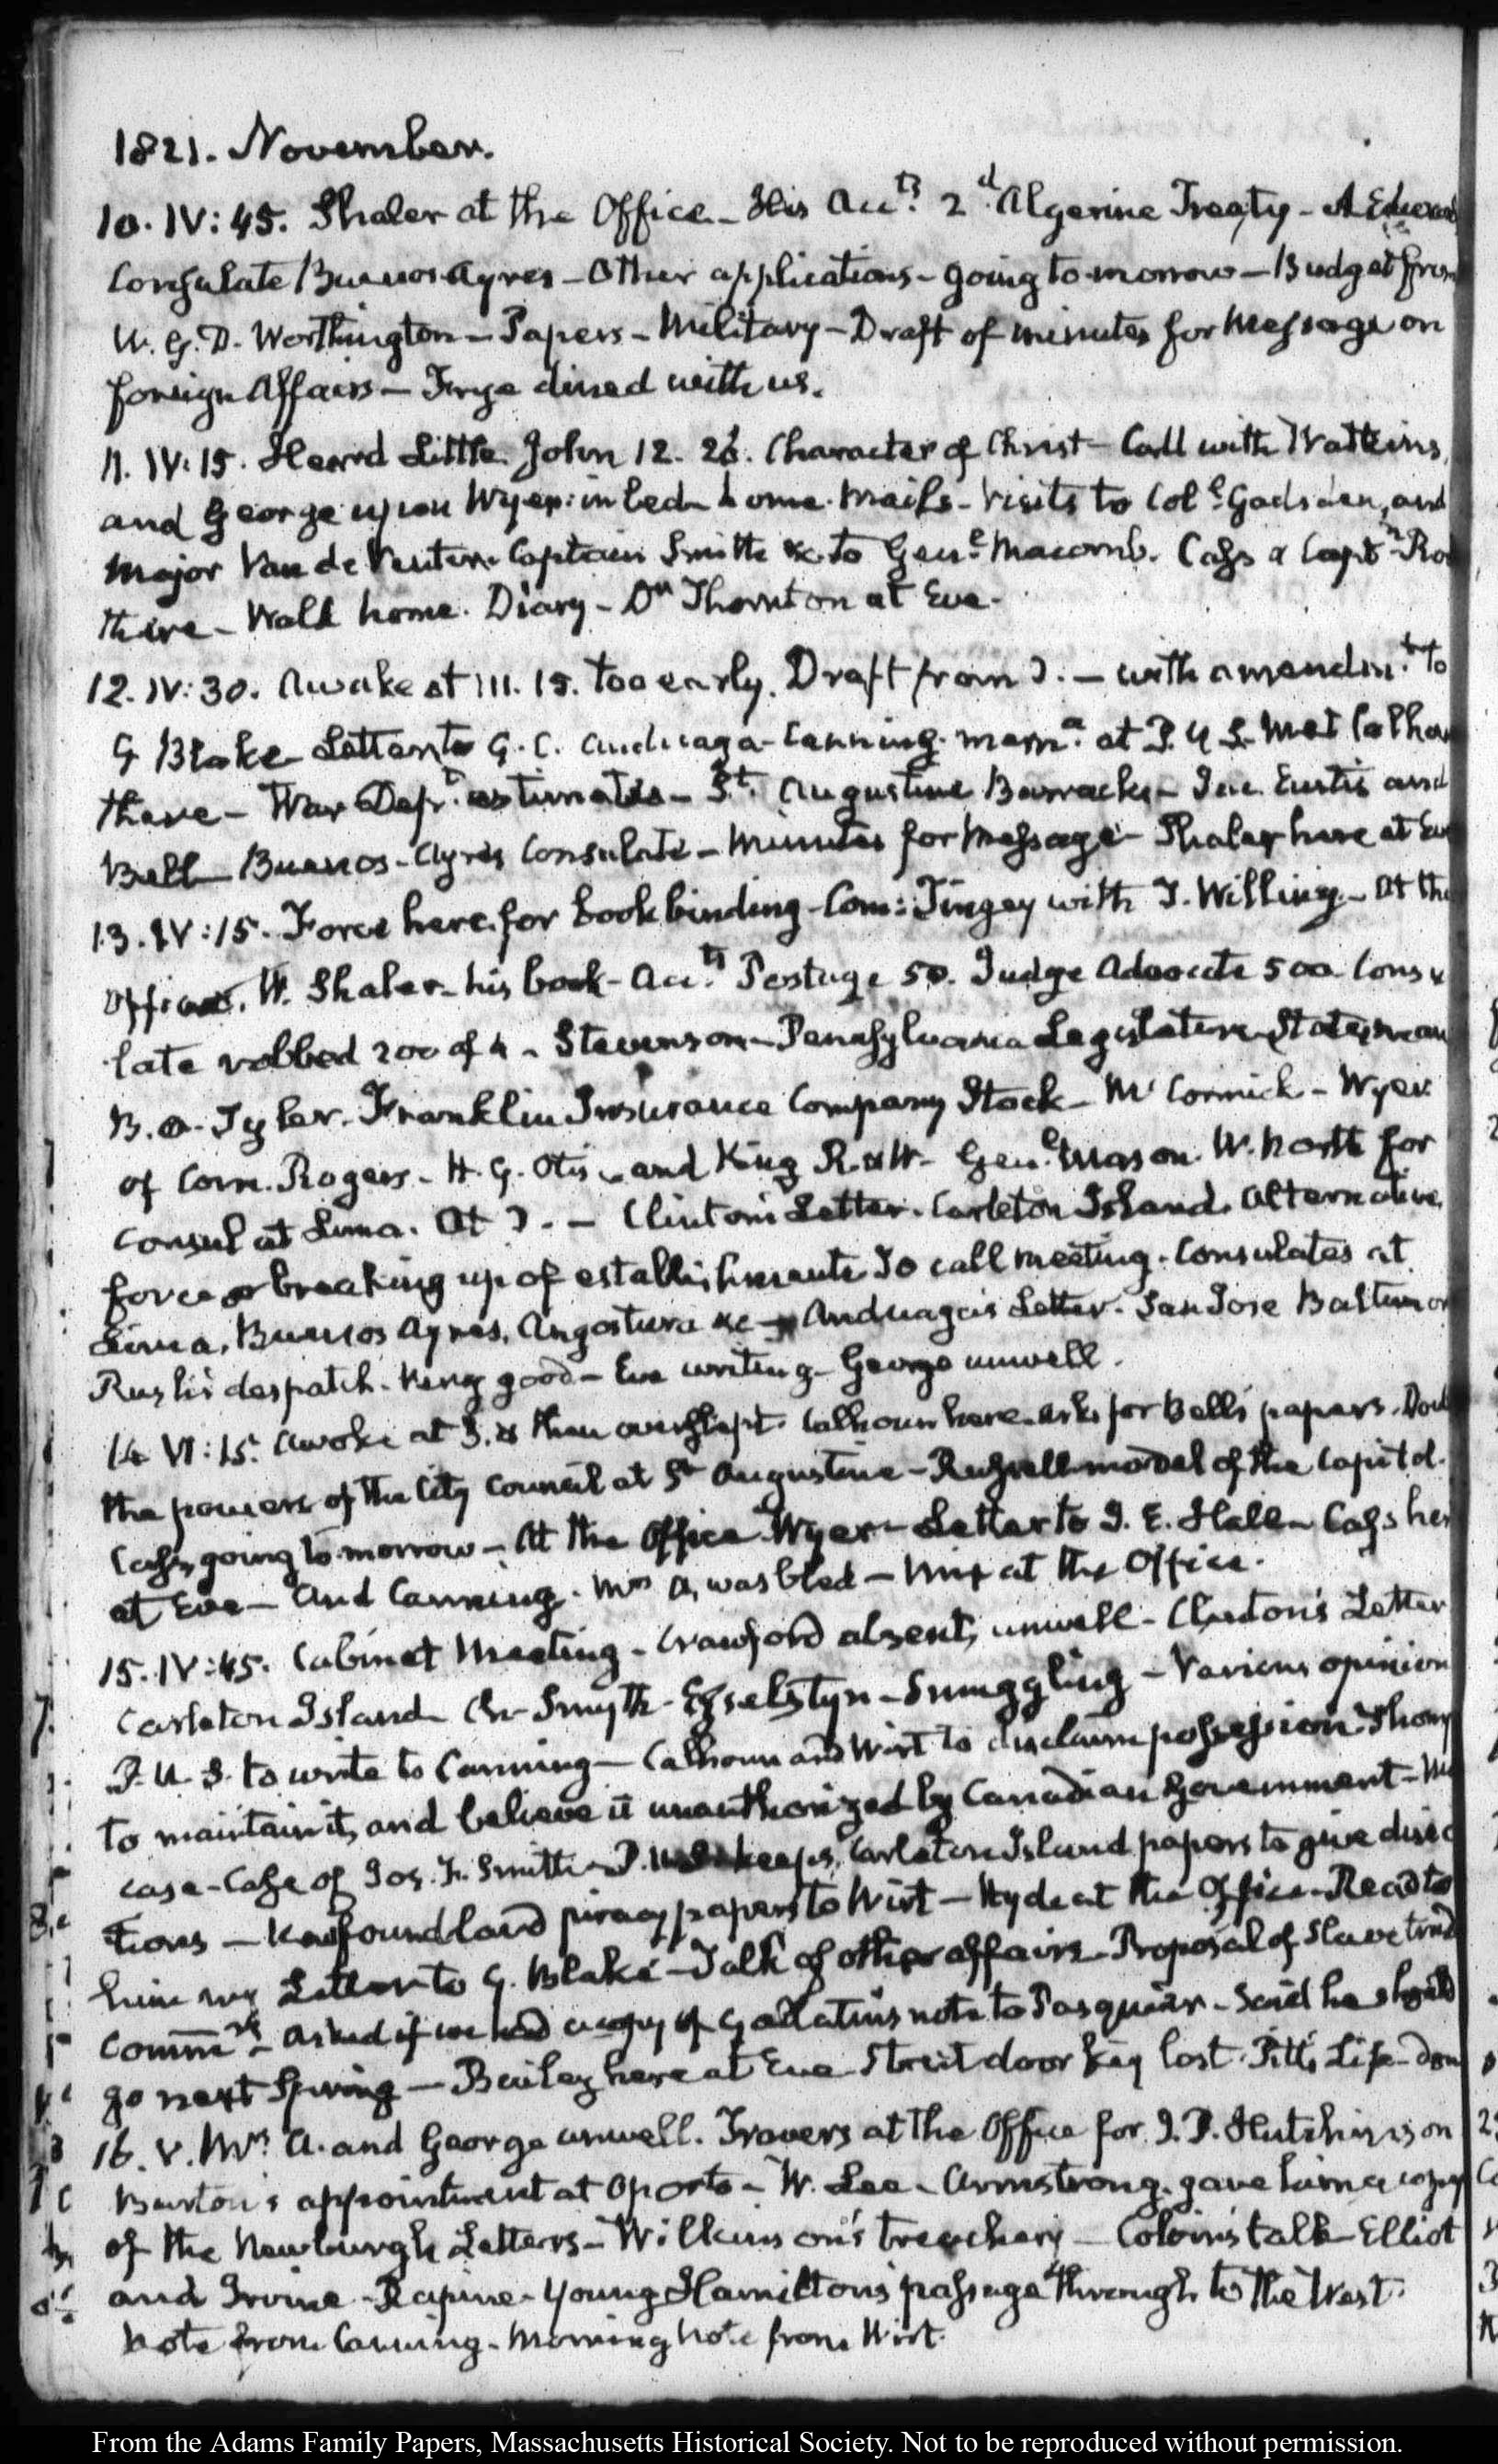 1821. November.
10. IV: 45. Shaler at the Office. His Acc.ts 2.d Algerine Treaty - A Edward
Consulate Buenos Ayres - Other applications - going to-morrow - Budget from
W. G. D. Worthington - Papers - Military - Draft of minutes for Message on
foreign Affairs - Frye dined with us.
11. IV: 15. Heard Little. John 12. 26. Character of Christ - Call with Watkins
and George upon Wyer: in bed home. Mails - Visits to Col.l Gadsden, and
Major Van de Venter. Captain Smith &c to Gen.l Macomb. Cass & Capt.n
there - Walk home. Diary - Dr. Thornton at Eve.
12. IV: 30. Awake at III. 15. too early. Draft from P. - with amendm.ts to
G Blake Letter to G. C. Anduaga - Canning. at P. U S. Met Calhou
there - War Dep.t estimates - St. Augustine Barracks - Eustis and
Bell - Buenos-Ayres Consulate - Minutes for Message - Shaler here at Eve
13. IV: 15. Force here for bookbinding - Com: Tingey with T. Willing - At the
Office. W. Shaler - his book - Acc.ts Postage 50. Judge Advocate 500 Consu
late robbed 200 of 4 - Stevenson - Pennsylvania Legislature
B. O. Tyler. Franklin Insurance Company Stock - McCormick - Wyer
of Com. Rogers - H. G. Otis and King R. & W - Gen.l Mason. W. North for
Consul at Lima. At P. - Clinton's Letter. Carleton Island. Alternative
force or breaking up of establishments To call meeting. Consulates at
Lima, Buenos Ayres, Angostura &c - Anduaga's Letter. San Jose Baltimor
Rush's despatch. Very good - Eve writing - George unwell.
14 VI: 15. Awoke at 3. & then overslept. Calhoun here. asks for Bell's papers.
the powers of the City Council at St Augustine - Russell model of the Capitol.
Cass, going to-morrow - At the Office Wyer - Letter to J. E. Hall - Cass her
at Eve - And Canning. Mrs A. was bled - at the Office.
15. IV: 45. Cabinet Meeting - Crawford absent, unwell - Clinton's Letter
Carleton Island Smyth - Esselstyn - Smuggling - Various opinion
P. U. S. to write to Canning - Calhoun and Wirt to disclaim possession
to maintain it, and believe it unauthorized by Canadian Government -
case - Case of Jos. F. Smith - P. U.S. keeps Carleton Island papers to give direc
tions - Newfoundland piracy papers to Wirt - Hyde at the Office - Read to
him my Letter to G. Blake - Talk of other affairs - Proposal of Slave trade
Comm.rs - asked if we had a copy of Gallatin's note to Pasquier - Said he should
go next Spring - Bailey here at Eve Street door key lost. Pitt's Life - done
16. V. Mrs A. and George unwell. Travers at the Office for J. P. Hutchinson
Burton's appointment at Oporto - W. Lee - Armstrong. gave him a copy
of the Newburgh Letters - Wilkinson's treachery - Colvin's talk - Elliot
and Irvine - Rapine - Young Hamilton's passage through to the West.
Note from Canning - Morning note from Wirt.
From the Adams Family Papers, Massachusetts Historical Society. Not to be reproduced without permission.